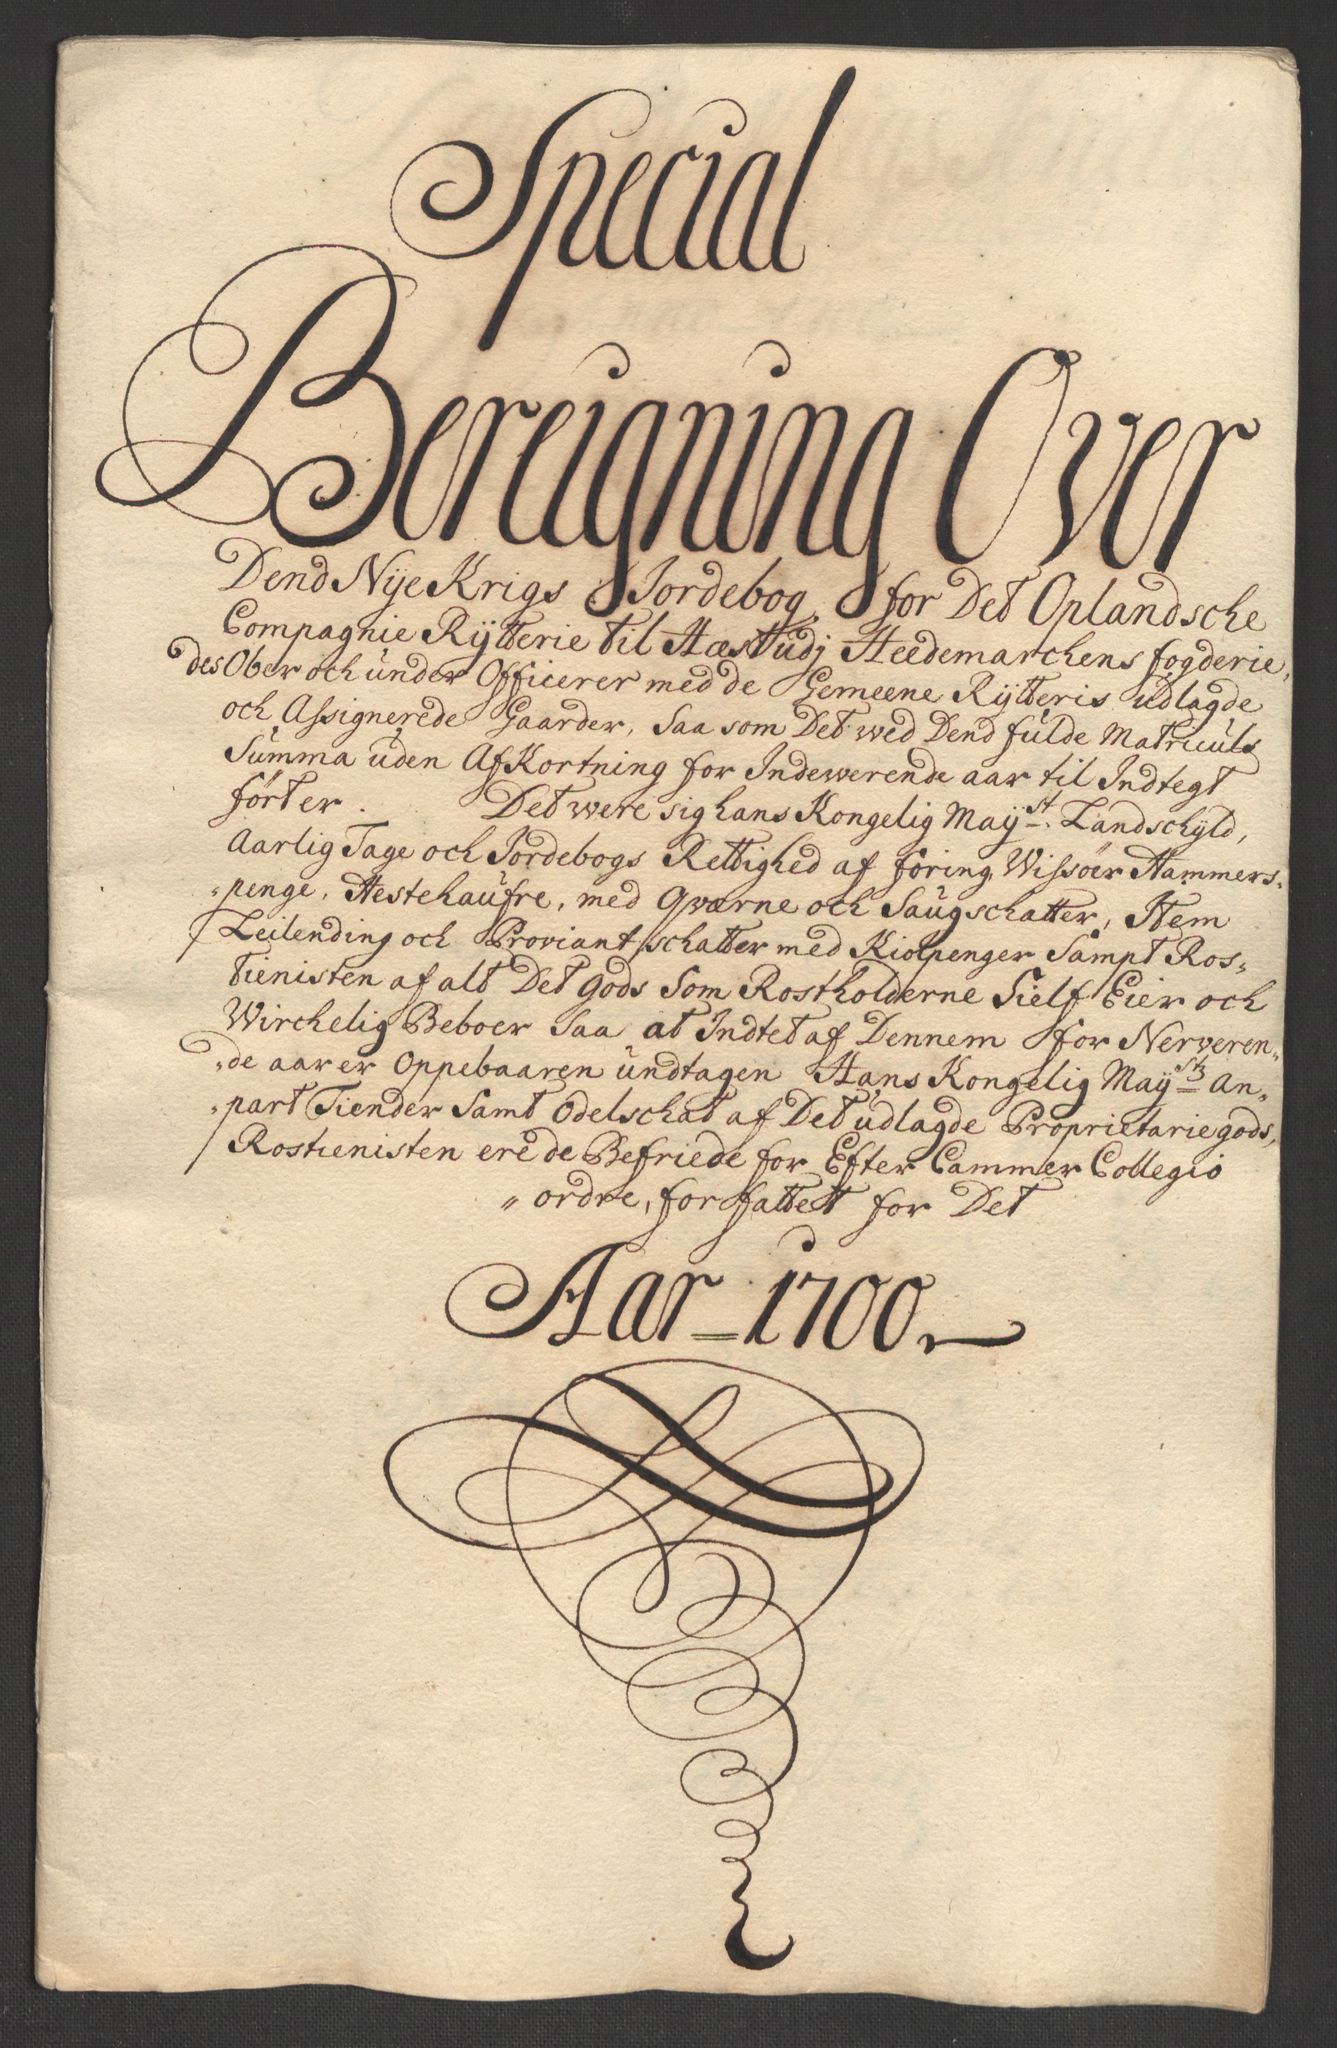 Special
Bereigning Over
Dend Nÿe Krigs Jordebog, for Det Oplandsche
Compagnie Rÿtterie til Hæst udj Heedemarchens fogderie,
des Ober och ünder Officerer med de Gemeene Rÿtteris üdlagde
och Assignerede Gaarder, Saa som Det wed Dend fülde Matriculs
Summa üden AfKortning for Indewerende aar til Indtegt
fört er. Det were sig hans Kongelig Maÿst. Landschÿld,
Aarlig Tage och Jordebogs Rettighed af foring, Wissöer Hammers-
"penge, Hestehaufre, med Qwærne och Saugschatter, Item
Leilending och Proviant schatter med Kiolpenger Sampt Ros-
tienisten af alt Det Gods Som Rostholderne Sielf Eier och
Wirchelig Beboer Saa at Indtet af Dennem for Nerweren"
"de aar er Oppebaaren undtagen Hans Kongelig Maÿsts An"
"part Tiender Samt Odelschat af Det üdlagde Proprietarie gods,
Rostienisten ere de Befriede for Efter Cammer Collegio
"ordre, forfattet for Det
Aar 1700